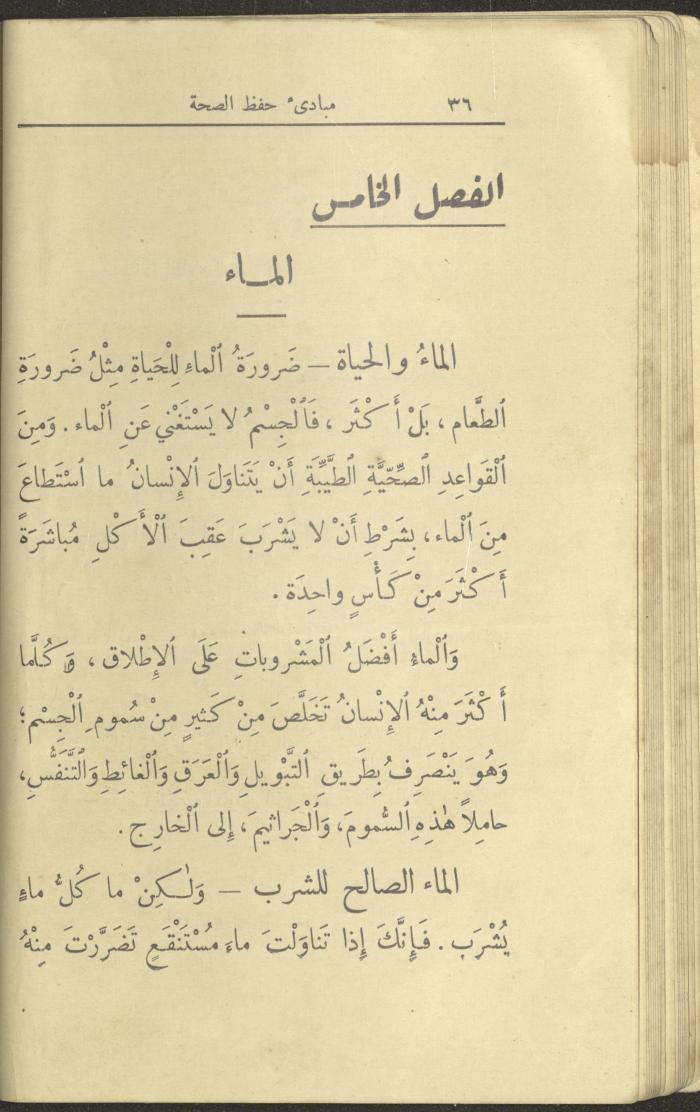 ٣٦ مبادىء حفظ الصحة
الفصل الخامس
المــاء
الماءُ والحياة — ضَرورَةُ ٱلْماءِ لِلْحَياةِ مِثْلُ ضَرورَةِ
ٱلطَّعام ، بَلْ أَكْثَر ، فَٱلْجِسْمُ لا يَسْتَغْني عَنِ ٱلْماء . وَمِنَ
ٱلْقَواعِدِ ٱلصِّحِّيَّةِ ٱلطَّيِّبَةِ أَنْ يَتَناوَلَ ٱلإِنْسانُ ما ٱسْتَطاعَ
مِنَ ٱلْماء ، بِشَرْطِ أَنْ لا يَشْرَبَ عَقِبَ ٱلْأَكْلِ مُباشَرَةً
أَكْثَرَ مِنْ كَأْسٍ واحِدَة .
وَٱلْماءُ أَفْضَلُ ٱلْمَشْروباتِ عَلَى ٱلإِطْلاق ، وَكُلَّما
أَكْثَرَ مِنْهُ ٱلإِنْسانُ تَخَلَّصَ مِنْ كَثيرٍ مِنْ سُمومِ ٱلْجِسْم ؛
وَهُوَ يَنْصَرِفُ بِطَريقِ ٱلتَّبْويلِ وَٱلْعَرَقِ وَٱلْغائِطِ وَٱلتَّنَفُّسِ ،
حامِلاً هٰذِهِ ٱلسُّمومَ ، وَٱلْجَراثيمَ ، إِلى ٱلْخارِج .
الماء الصالح للشرب — وَلٰـكِنْ ما كُلُّ ماءٍ
يُشْرَب . فَإِنَّكَ إِذا تَناوَلْتَ ماءَ مُسْتَنْقَعٍ تَضَرَّرْتَ مِنْهُ